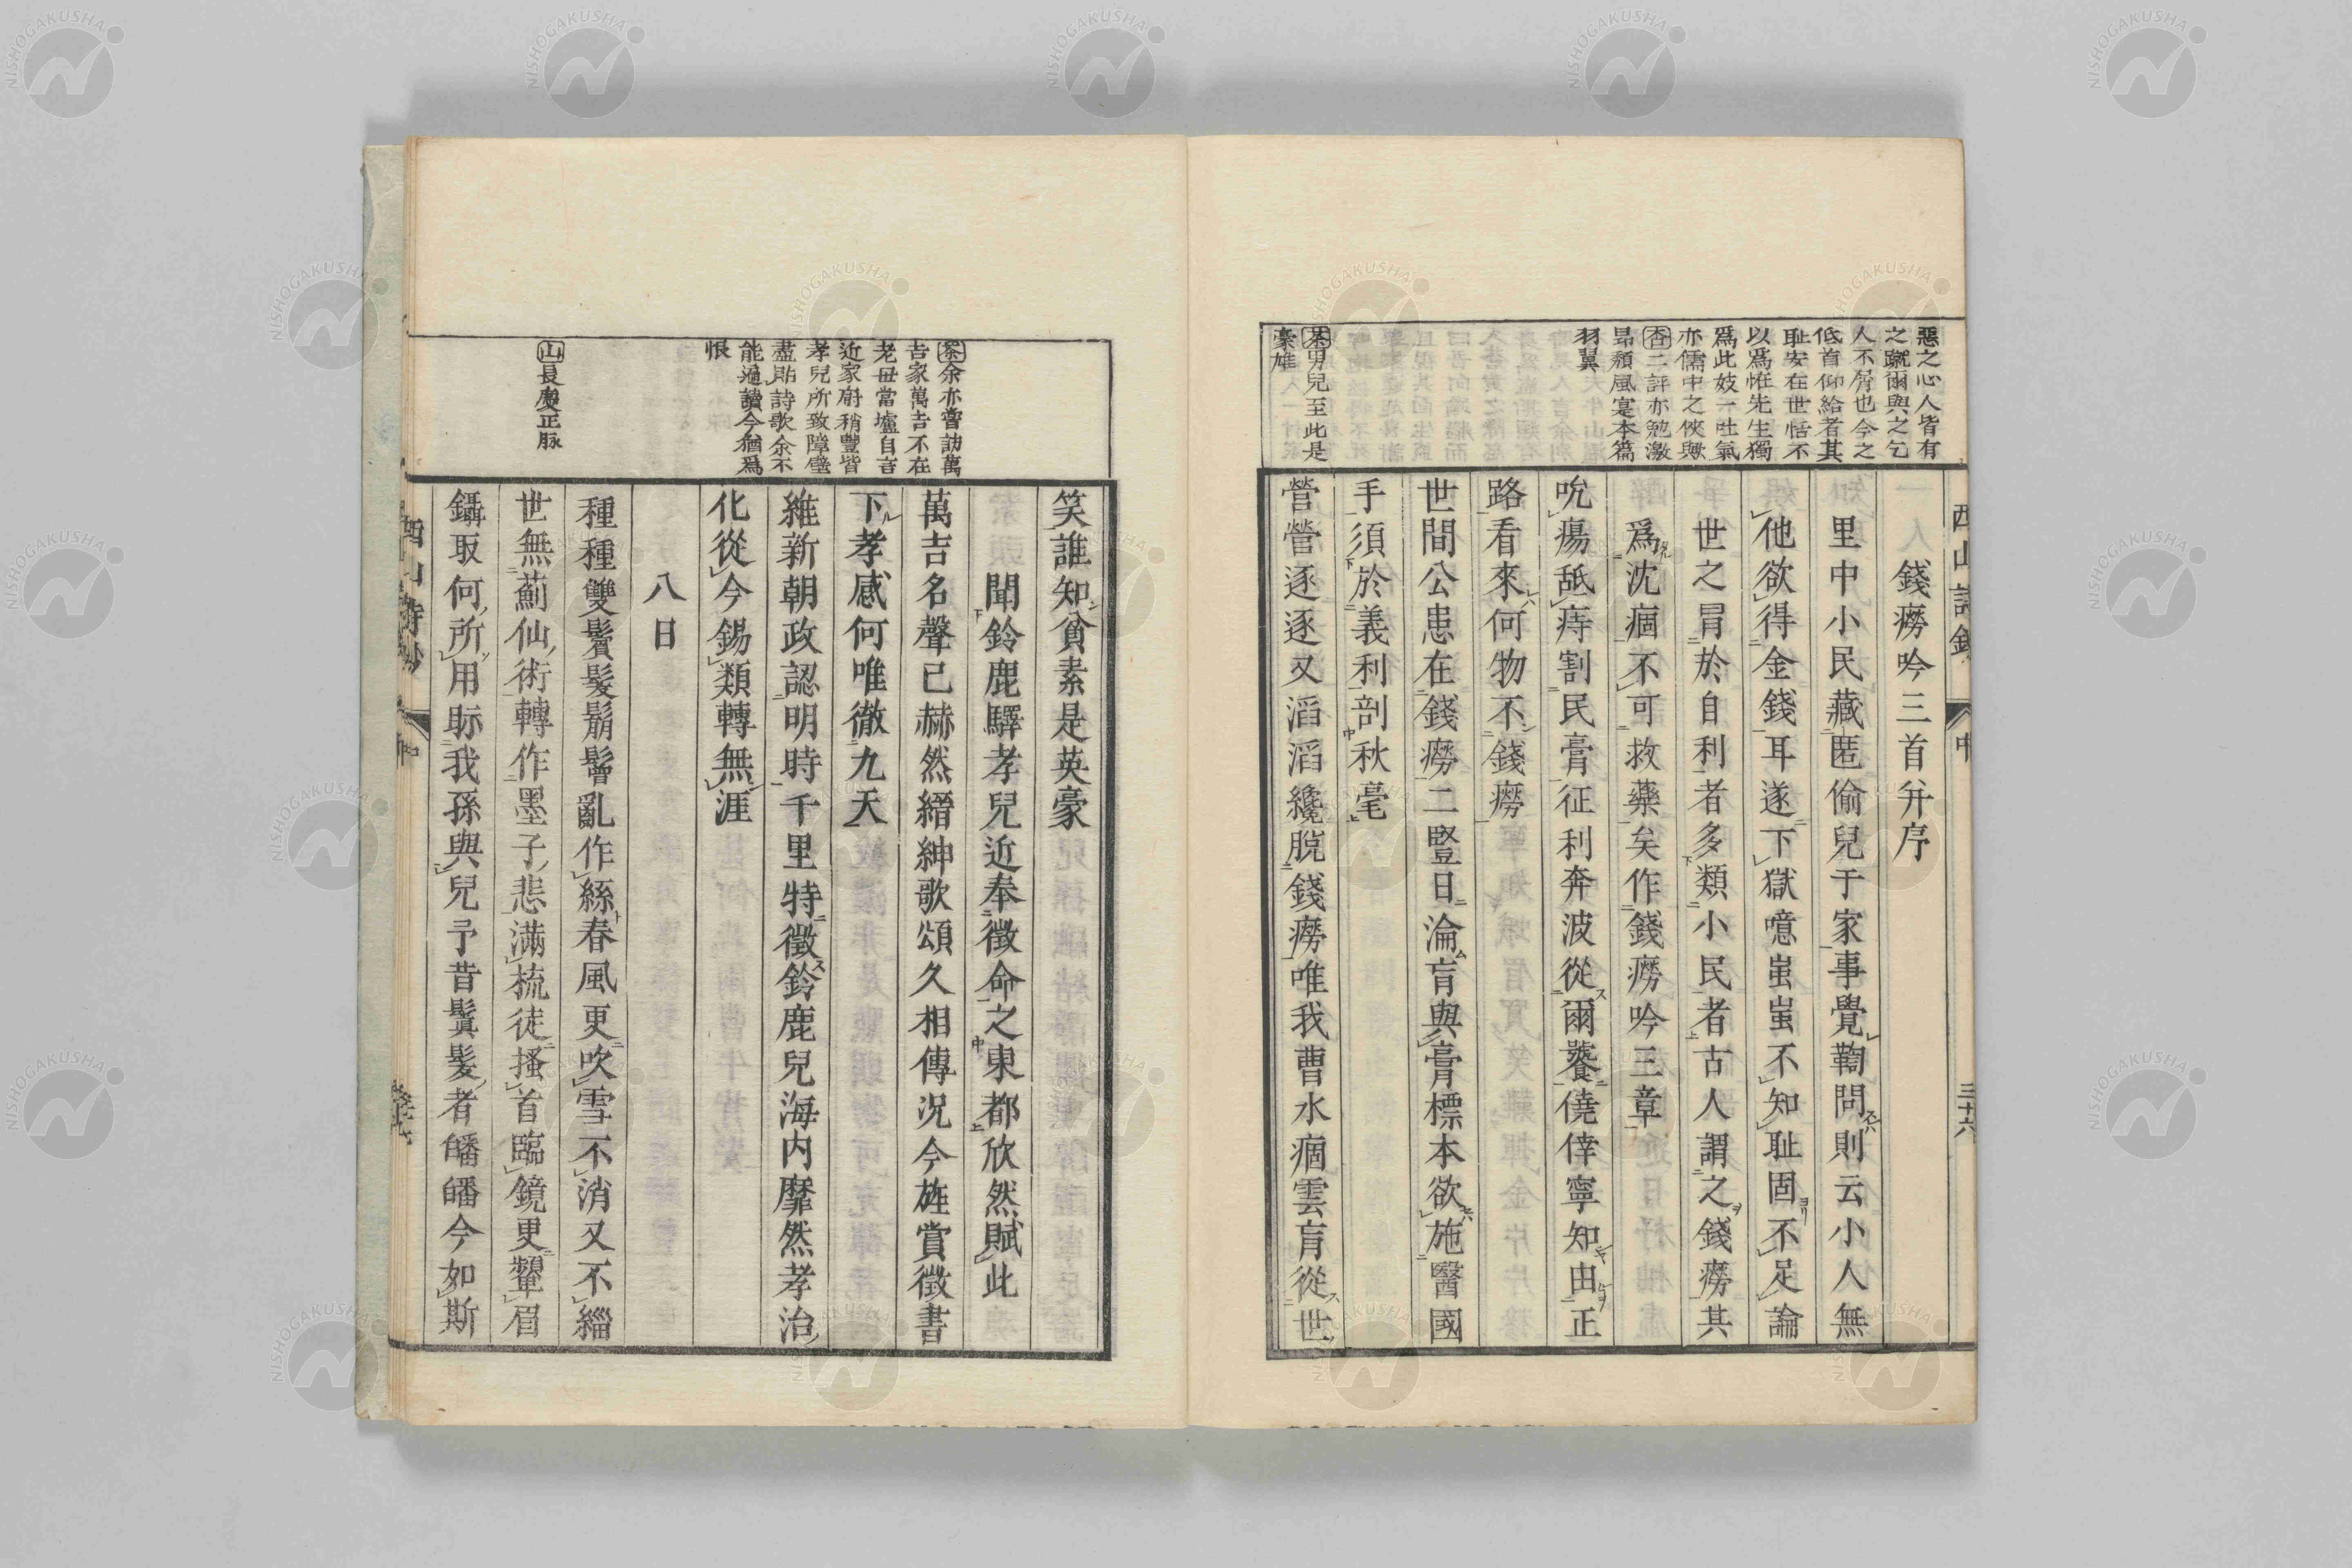 惡之心人皆有
之蹴爾與之乞
人不屑也今之
低首仰給者其
耻安在世恬不
以爲怪先生獨
爲此妓一吐氣
亦儒中之俠歟
杏二評亦勉激
昻頽風寔本篇
羽翼
茶男兒至此是
豪雄
錢癆吟三首并序
里中小民藏匿偷兒于家事覺鞫問則云小人無
他欲得金錢耳遂下獄噫蚩蚩不知耻固不足論
世之冐於自利者多類小民者古人謂之錢癆其
爲沈痼不可救藥矣作錢癆吟三章
吮瘍舐痔割民膏征利奔波從爾饕僥倖寧知由正
路看來何物不錢癆
世間公患在錢癆二豎日淪肓與膏標本欲施醫國
手須於義利剖秋毫
營營逐逐又滔滔纔脫錢癆唯我曹水痼雲肓從世
中
三十六
笑誰知貧素是英豪
聞鈴鹿驛孝兒近奉徵命之東都欣然賦此
萬吉名聲已赫然縉紳歌頌久相傳况今旌賞徵書
下孝感何唯徹九天
維新朝政認明時千里特徵鈴鹿兒海内靡然孝治
化從今錫類轉無涯
八日
種種雙鬢髮鬅鬙亂作絲春風更吹雪不消又不緇
世無薊仙術轉作墨子悲滿梳徒搔首臨鏡更顰眉
鑷取何所用眎我孫與兒予昔鬒髮者皤皤今如斯
茶余亦嘗訪萬
吉家萬吉不在
老母當壚自言
近家府稍豐皆
孝兒所致障壁
盡貼詩歌余不
能遍讀今猶爲
恨
山長慶正脉